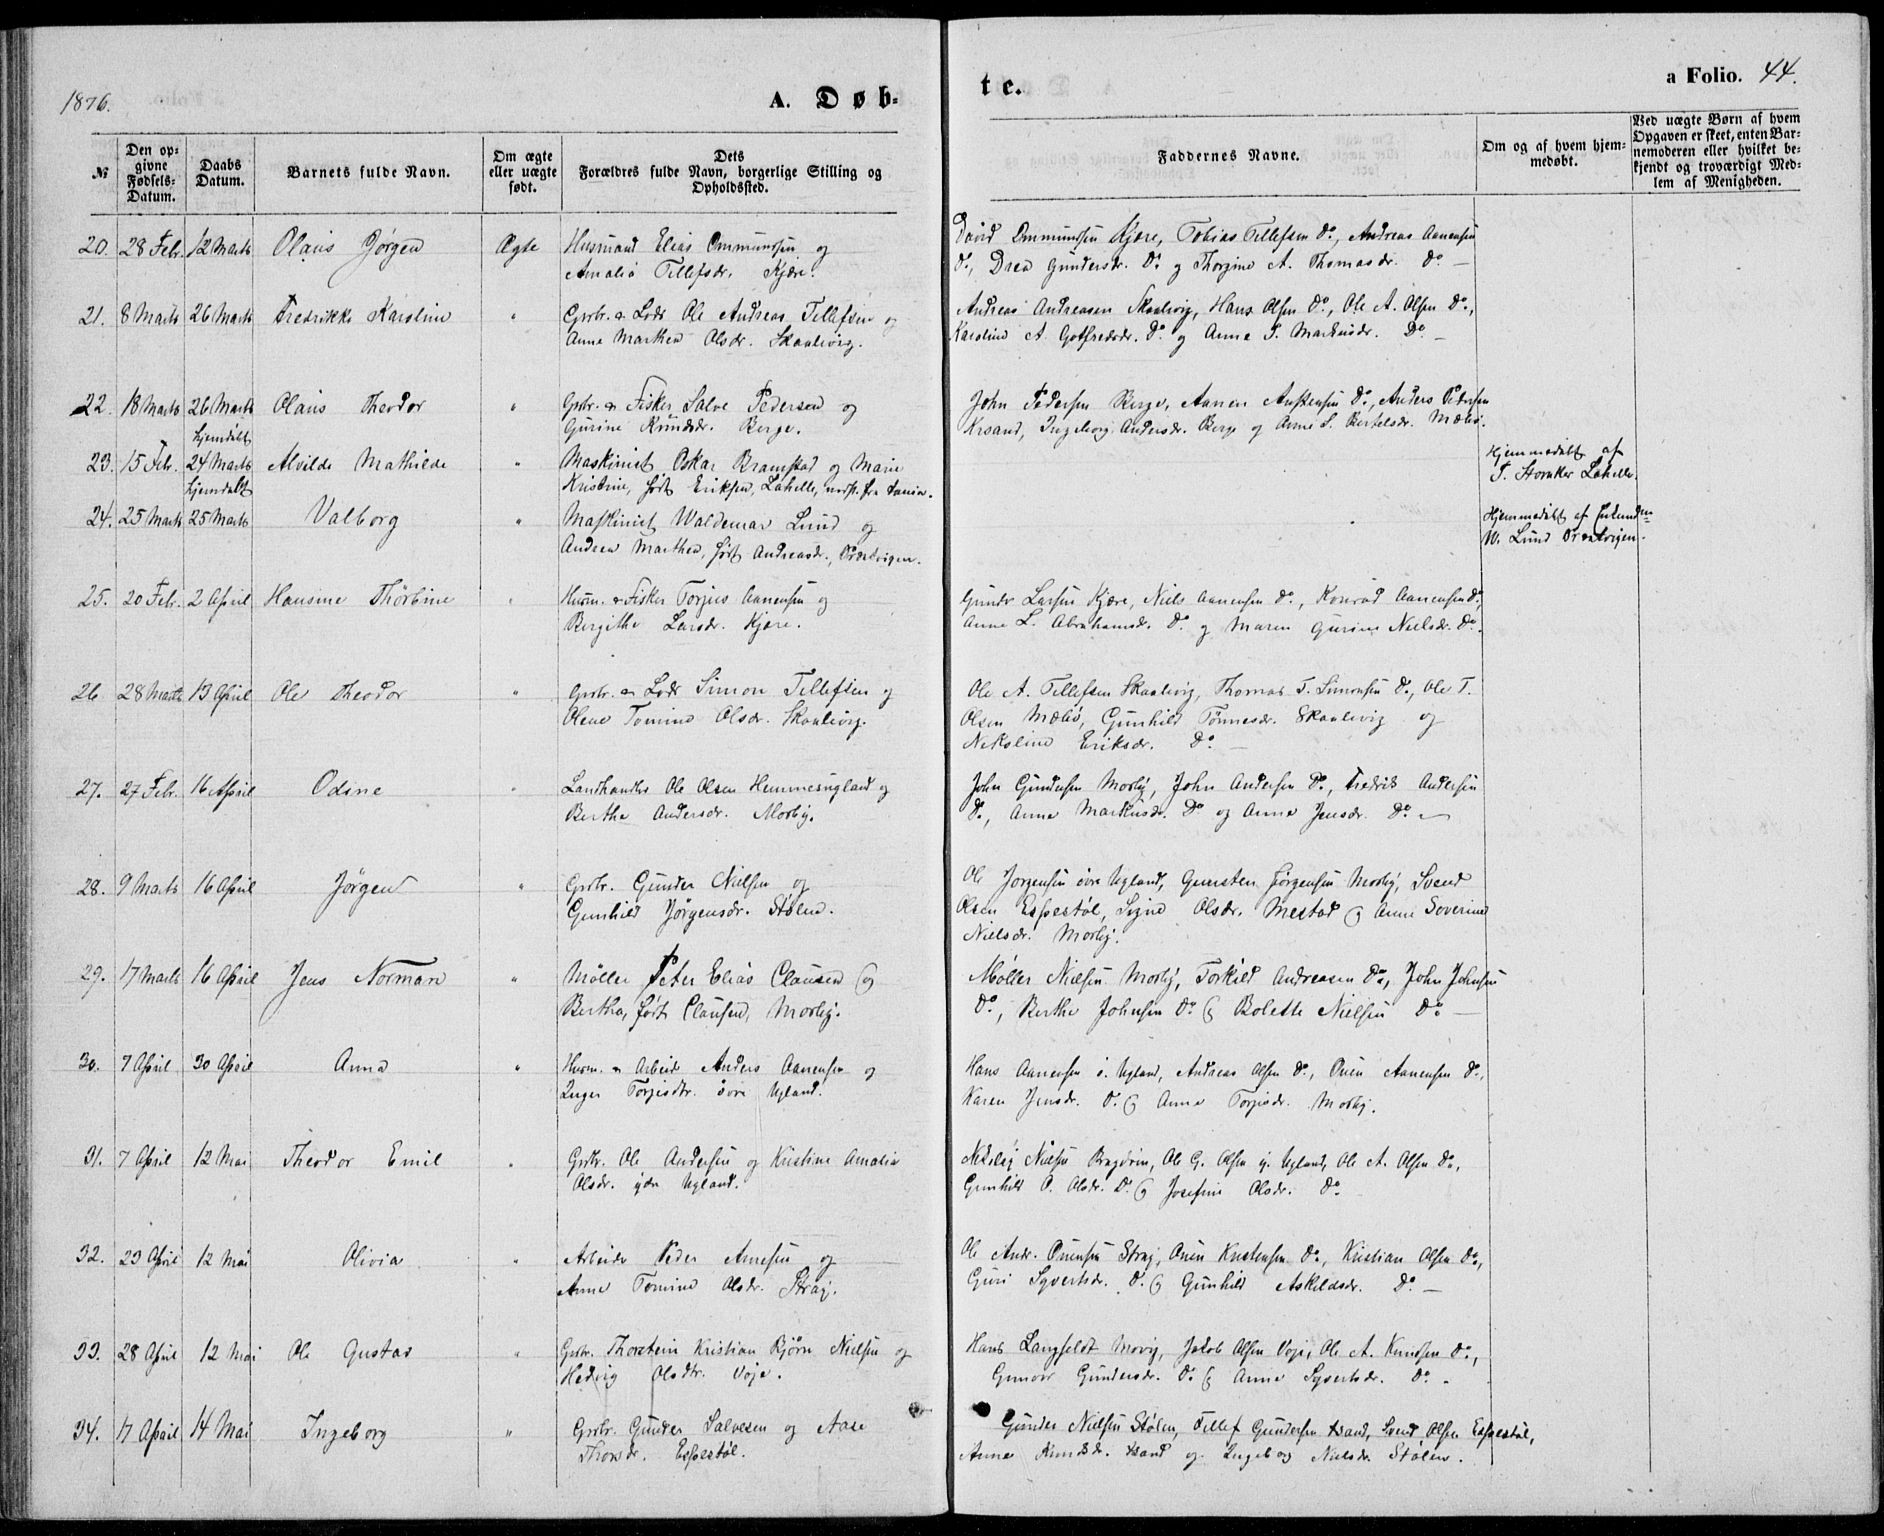 1876.
A. Døb-
te.
a Folio. 44.
№
Den op-
givne
Fødsels-
Datum.
Daabs
Datum.
Barnets fulde Navn.
Om ægte
eller uægte
født.
Dets
Forældres fulde Navn, borgerlige Stilling og
Opholdssted.
Faddernes Navne.
Om og af hvem hjem-
medøbt.
Ved uægte Børn af hvem
Opgaven er skeet, enten Bar-
nemoderen eller hvilket be-
kjendt og troværdigt Med-
lem af Menigheden.
20. 28 Febr. 12 Marts Olaus Jørgen Ægte Husmand Elias Ommundsen og
Amalia Tellefsdr. Kjære.
David Ommundsen Kjære, Tobias Tellefsen Do, Andreas Aanensen
Do, Drea Gundersdr. Do og Thorgine A. Thomasdr. Do —
21. 8 Marts 26 Marts Fredrikke Karoline " Grbr. & Lods Ole Andreas Tellefsen og
Anne Marthea Olsdr. Skaalevig.
Andreas Andreasen Skaalevig, Hans Olsen Do, Ole A. Olsen Do,
Karoline A. Gotfredsdr. Do og Anne S. Markusdr. Do —
22. 18 Marts 26 Marts Olaus Theodor " Grbr. & Fisker Salve Pedersen og
Gurine Knudsdr. Berge.
John Pedersen Berge, Aanen Austensen Do, Anders Pedersen
Krsand, Ingeborg Andersdr. Berge og Anne S. Bertelsdr. Mæbø.
23. 15 Febr. hjemdøbt 24 Marts Alvilde Mathilde " Maskinist Oskar Bramstad og Marie
Kristine, født Eriksen, Lahelle,
Hjemmedøbt af
Lahelle.
24. 25 Marts hjemdøbt 25 Marts Valborg " Maskinist Waldemar Lund og
Andrea Marthea, født Andreasdr.,
Hjemmedøbt af
W. Lund
25. 20 Febr. 2 April Hansine Thorbine " Husm. & Fisker Torjus Aanensen og
Bergithe Larsdr. Kjære.
Gunder Larsen Kjære, Niels Aanensen Do, Konrad Aanensen Do,
Anne L. Abrahamsdr. Do og Maren Gurine Nielsdr. Do.
26 28 Marts 13 April Ole Theodor " Grbr. & Lods Simon Tellefsen og
Olene Tomine Olsdr. Skaalevig.
Ole A. Tellefsen Skaalevig, Thomas T. Simonsen Do, Ole T.
Olsen Mæbø, Gunhild Tønnesdr. Skaalevig og
Nikoline Eriksdr. Do —
27. 27 Febr. 16 April Odine " Landhandler Ole Olsen Hemmesugland og
Berthe Andersdr. Mosby.
John Gundersen Mosby, John Andersen Do, Fredrik Andersen
Do, Anne Markusdr. Do og Anne Jensdr. Do —
28. 9 Marts 16 April Jørgen " Grbr. Gunder Nielsen og
Gunhild Jørgensdr. Stølen.
Ole Jørgensen øvre Ugland, Gunsten Jørgensen Mosby, Svend
Olsen Espestøl, Signe Olsdr. Mestad og Anne Soverine
Nielsdr. Mosby.
29. 17 Marts 16 April Jens Norman " Møller Peter Elias Clausen og
Bertha, født Clausen, Mosby.
Møller Nielsen Mosby, Torkild Andreasen Do, John Johnsen
Do, Berthe Johnsen Do og Bolette Nielsen Do —
30. 7 April 30 April Anna " Husm. & Arbeider Anders Aanensen og
Inger Torjisdtr. øvre Ugland.
Hans Aanensen ø. Ugland, Andreas Olsen Do, Ouen Aanensen Do,
Karen Jensdr. Do og Anne Torjisdr. Mosby.
31. 7 April 12 Mai Theodor Emil " Grbr. Ole Andersen og Kristine Amalie
Olsdr. ydre Ugland.
Nikolaj Nielsen Bragdøen, Ole G. Olsen y. Ugland, Ole A. Olsen Do,
Gunhild O. Olsdr. Do og Josefine Olsdr. Do.
32. 23 April 12 Mai Olivia " Arbeider Peder Arnesen og
Anne Tomine Olsdr. Stray.
Ole Andr. Ouensen Stray, Ouen Knutensen Do, Kristian Olsen Do,
Guri Syvertsdr. Do og Gunhild Askildsdr. Do —
33. 28 April 12 Mai Ole Gustav " Grbr. Thorstein Kristian Bjørn Nielsen og
Hedvig Olsdtr. Voje.
Hans Langfeldt Movig, Jakob Olsen Voje, Ole A. Knudsen Do,
Gunvor Gundersdr. Do og Anne Syvertsdr. Do.
34. 17 April 14 Mai Ingeborg " Grbr. Gunder Salvesen og Aase
Thorsdr. Espestøl.
Gunder Nielsen Stølen, Tellef Gundersen Krsand, Svend Olsen Espestøl,
Anne Knudsdr. Krsand og Ingeborg Nielsdr. Stølen.